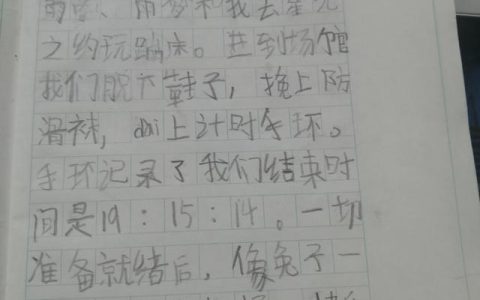 和我去星光
之约玩蹦床。进到场馆
我们脱下鞋子，换上防
滑袜，dai上计时手环。
手环记录了我们结束时
间是19：15：14。一切
准备就绪后，像兔子一